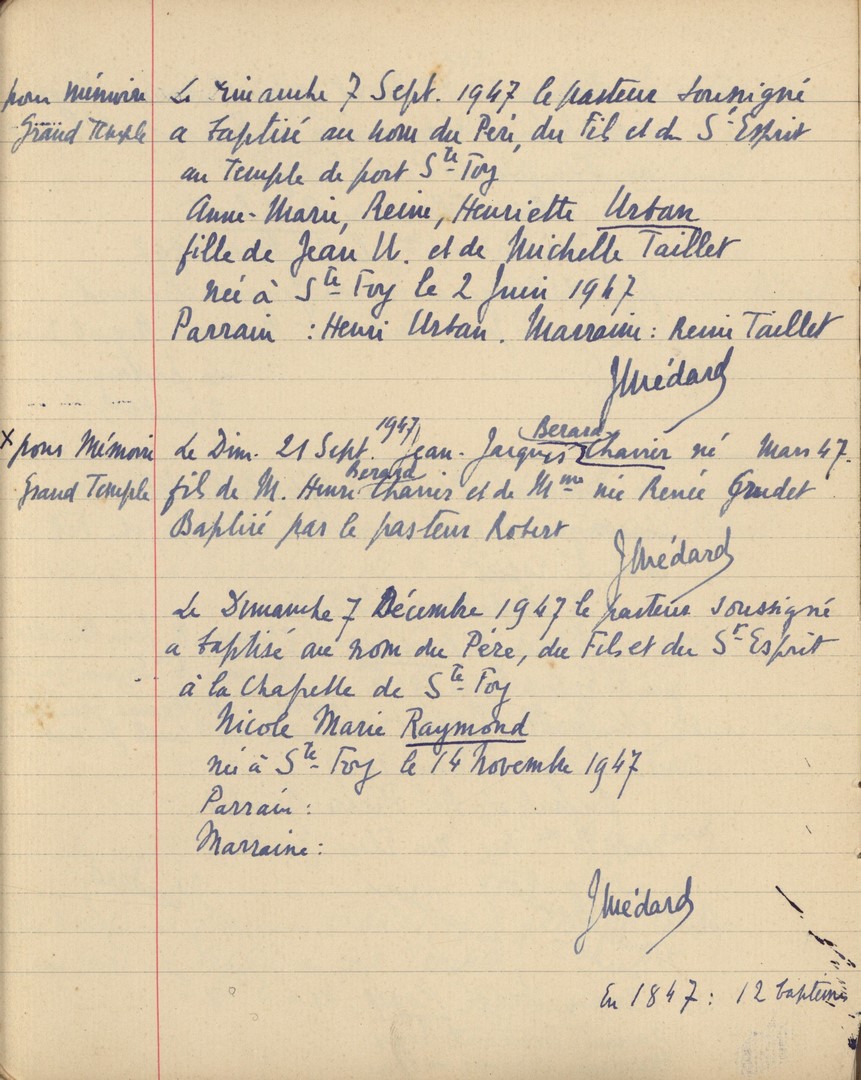 pour Mémoire
Grand Temple
Le Dimanche 7 Sept. 1947 le pasteur soussigné
a baptisé au nom du Père, du Fils et du St-Esprit
au Temple de port Ste-Foy
Anne-Marie, Reine, Henriette Urban
fille de Jean U. et de Michelle Taillet
née à Ste-Foy le 2 Juin 1947
Parrain : Henri Urban. Marraine : Reine Taillet
JMédard
x pour Mémoire
Grand Temple
Le Dim. 21 Sept. 1947 Jean-Jacques Berard Charier né Mars 47.
fils de M. Henri Berard Charier et de Mme née Renée Grudet
Baptisé par le pasteur Robert
JMédard
Le Dimanche 7 Décembre 1947 le pasteur soussigné
a baptisé au nom du Père, du Fils et du St-Esprit
à la Chapelle de Ste-Foy
Nicole Marie Raymond
née à Ste-Foy le 14 Novembre 1947
Parrain :
Marraine :
JMédard
En 1847 : 12 baptêmes